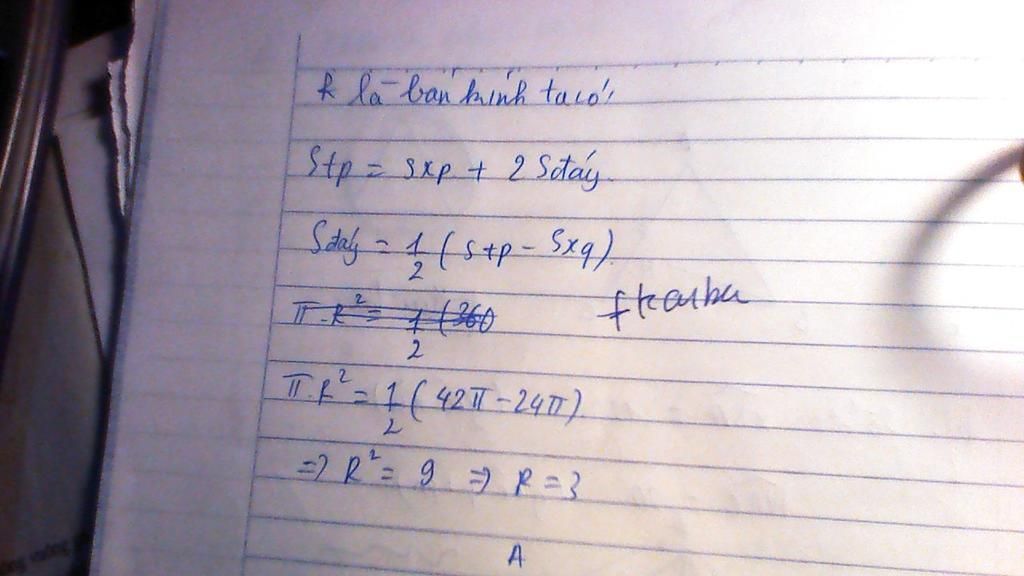 R là bán kính ta có:
Stp = Sxp + 2 Sđáy.
Sđáy = 1/2 (Stp - Sxq).
π.R² = 1/2 (360
π.R² = 1/2 (42π - 24π)
=> R² = 9 => R = 3
A